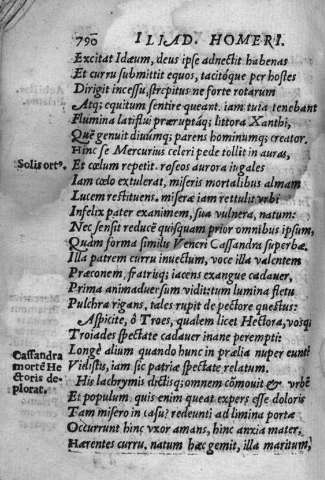 790 ILIAD. HOMERI.
Excitat Idæum, deus ipse adnectit habenas
Et curru submittit equos, tacitóque per hostes
Dirigit incessu, strepitus ne forte rotarum
Atq; equitum sentire queant. iam tuta tenebant
Flumina latiflui præruptáq; littora Xanthi,
Quē genuit diuumq; parens hominumq; creator.
Hinc se Mercurius celeri pede tollit in auras,
Solis ort⁹.
Et cœlum repetit. roseos aurora iugales
Iam cœlo extulerat, miseris mortalibus almam
Lucem restituens, miseræ iam rettulit vrbi
Infelix pater exanimem, sua vulnera, natum:
Nec sensit reducē quisquam prior omnibus ipsum,
Quàm forma similis Veneri Cassandra superbæ.
Illa patrem curru inuectum, voce illa valentem
Præconem, fratrisq; iacens exangue cadauer,
Prima animaduersum vidit: tum lumina fletu
Pulchra rigans, tales rupit de pectore questus:
Aspicite, ô Troes, qualem licet Hectora, vosq;
Troiades spectate cadauer inane perempti:
Cassandra mortē Hectoris deplorat.
Longè alium quondā hunc in prælia nuper euntē
Vidistis, iam sic patriæ spectate relatum.
His lachrymis dictisq; omnem cōmouit & vrbē
Et populum. quis enim queat expers esse doloris
Tam misero in casu? redeunti ad limina portæ
Occurrunt hinc vxor amans, hinc anxia mater,
Hærentes curru, natum hæc gemit, illa maritum,